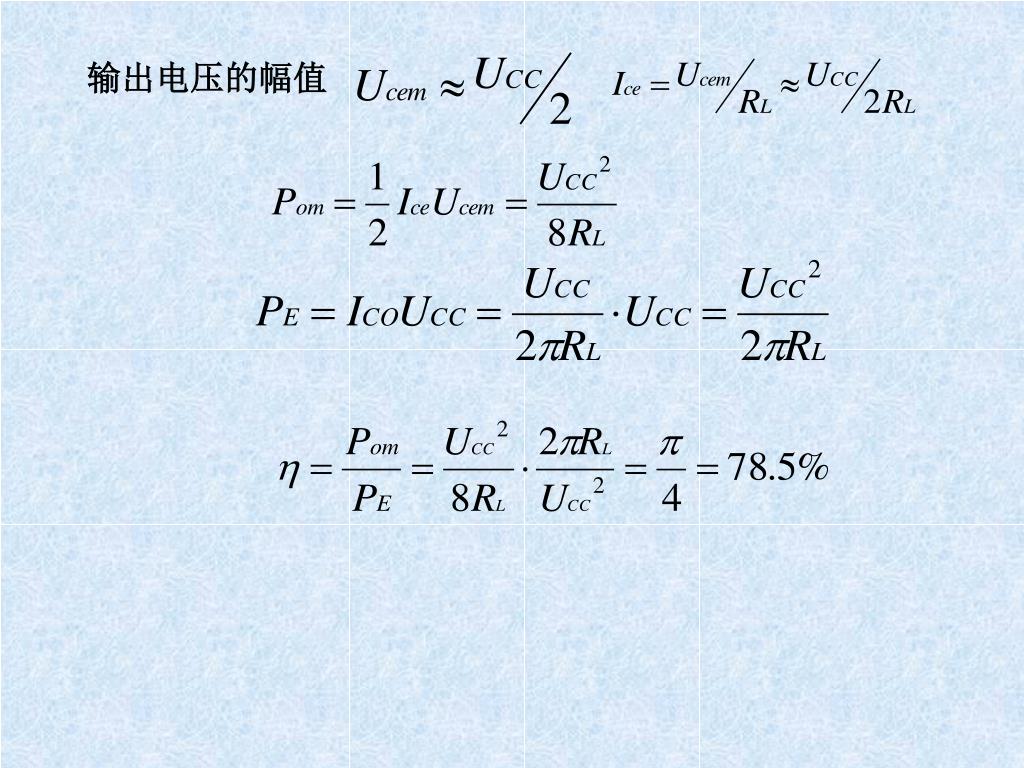 输出电压的幅值 Ucem ≈ UCC/2 Ice = Ucem/RL ≈ UCC/2RL
Pom = 1/2 IceUcem = UCC²/8RL
PE = ICOUCC = UCC/2πRL · UCC = UCC²/2πRL
η = Pom/PE = UCC²/8RL · 2πRL/UCC² = π/4 = 78.5%